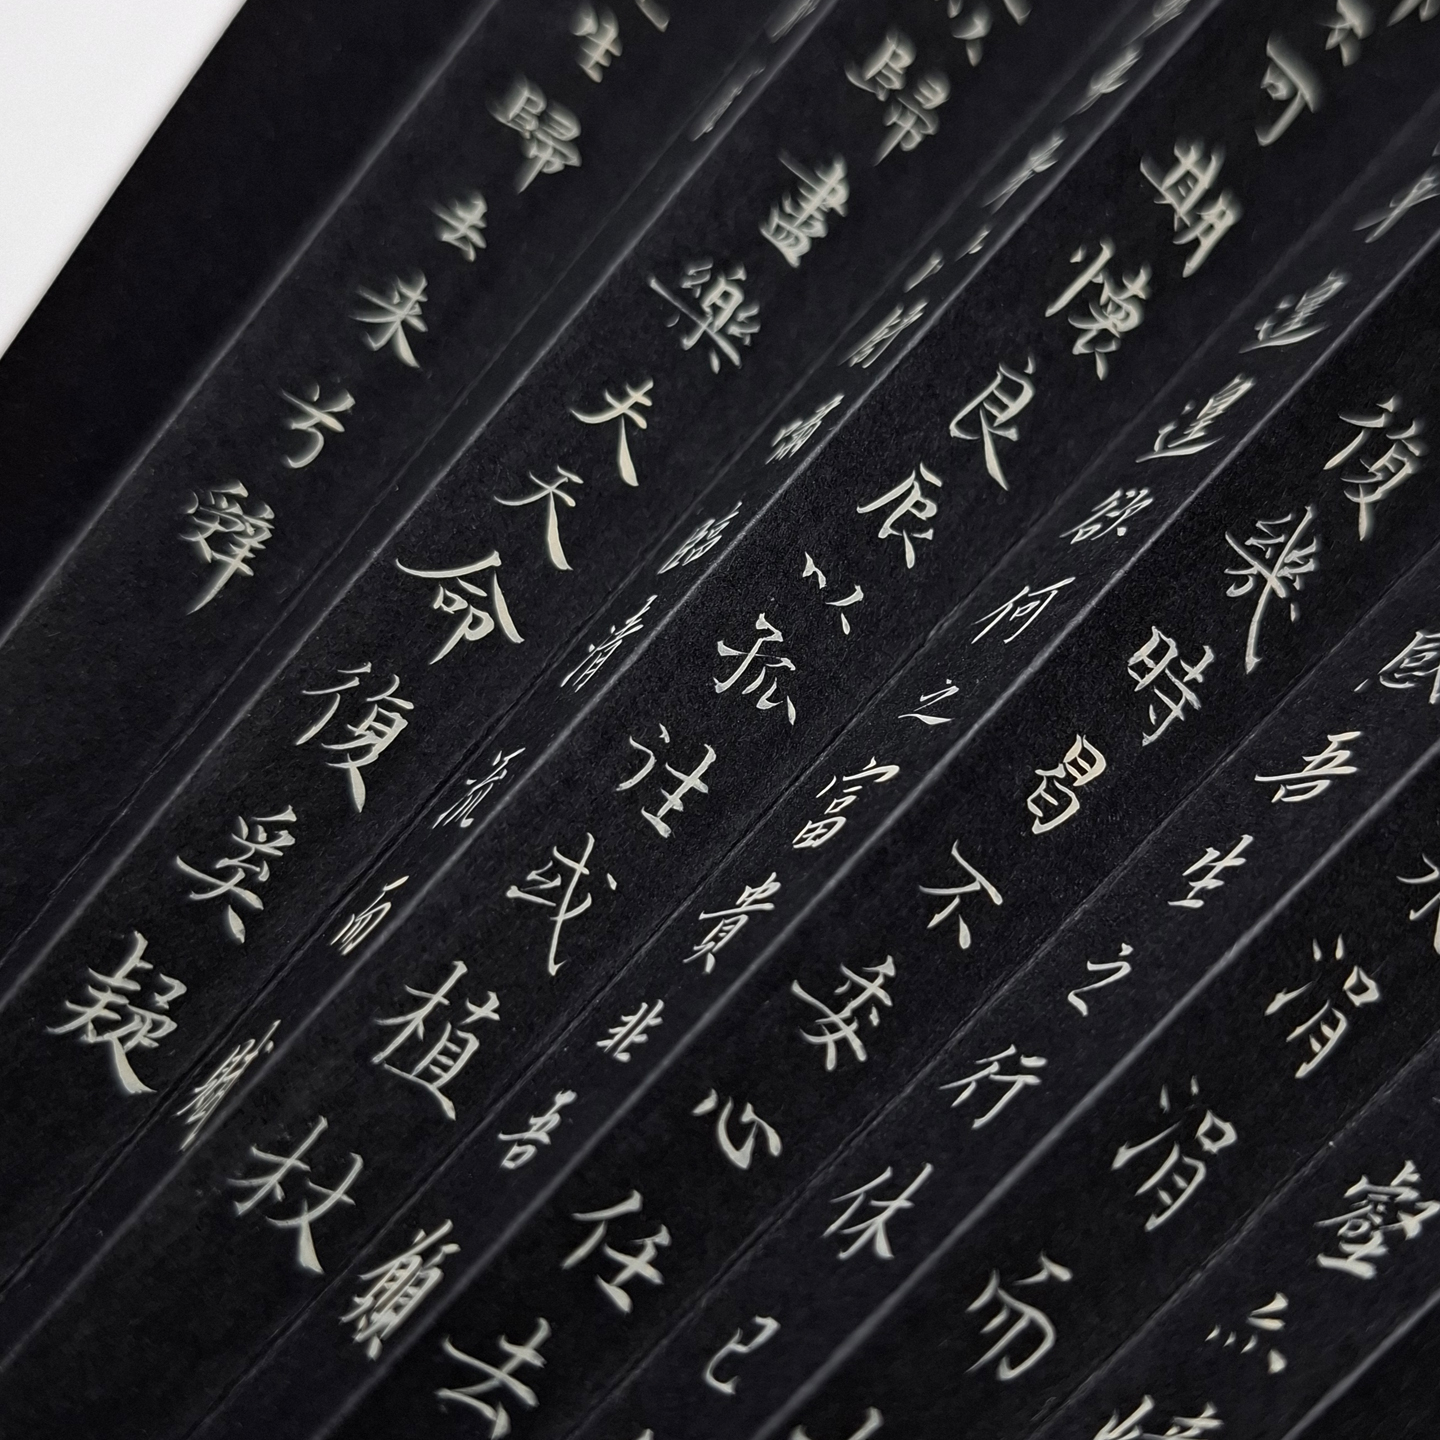 壑亦崎
涓涓
感吾生之行休已
復幾時曷不委心任去
遑遑欲何之富貴非吾願
可期懷良辰以孤往或植杖
嘯臨清流而賦
歸盡樂夫天命復奚疑
生歸去来兮辭